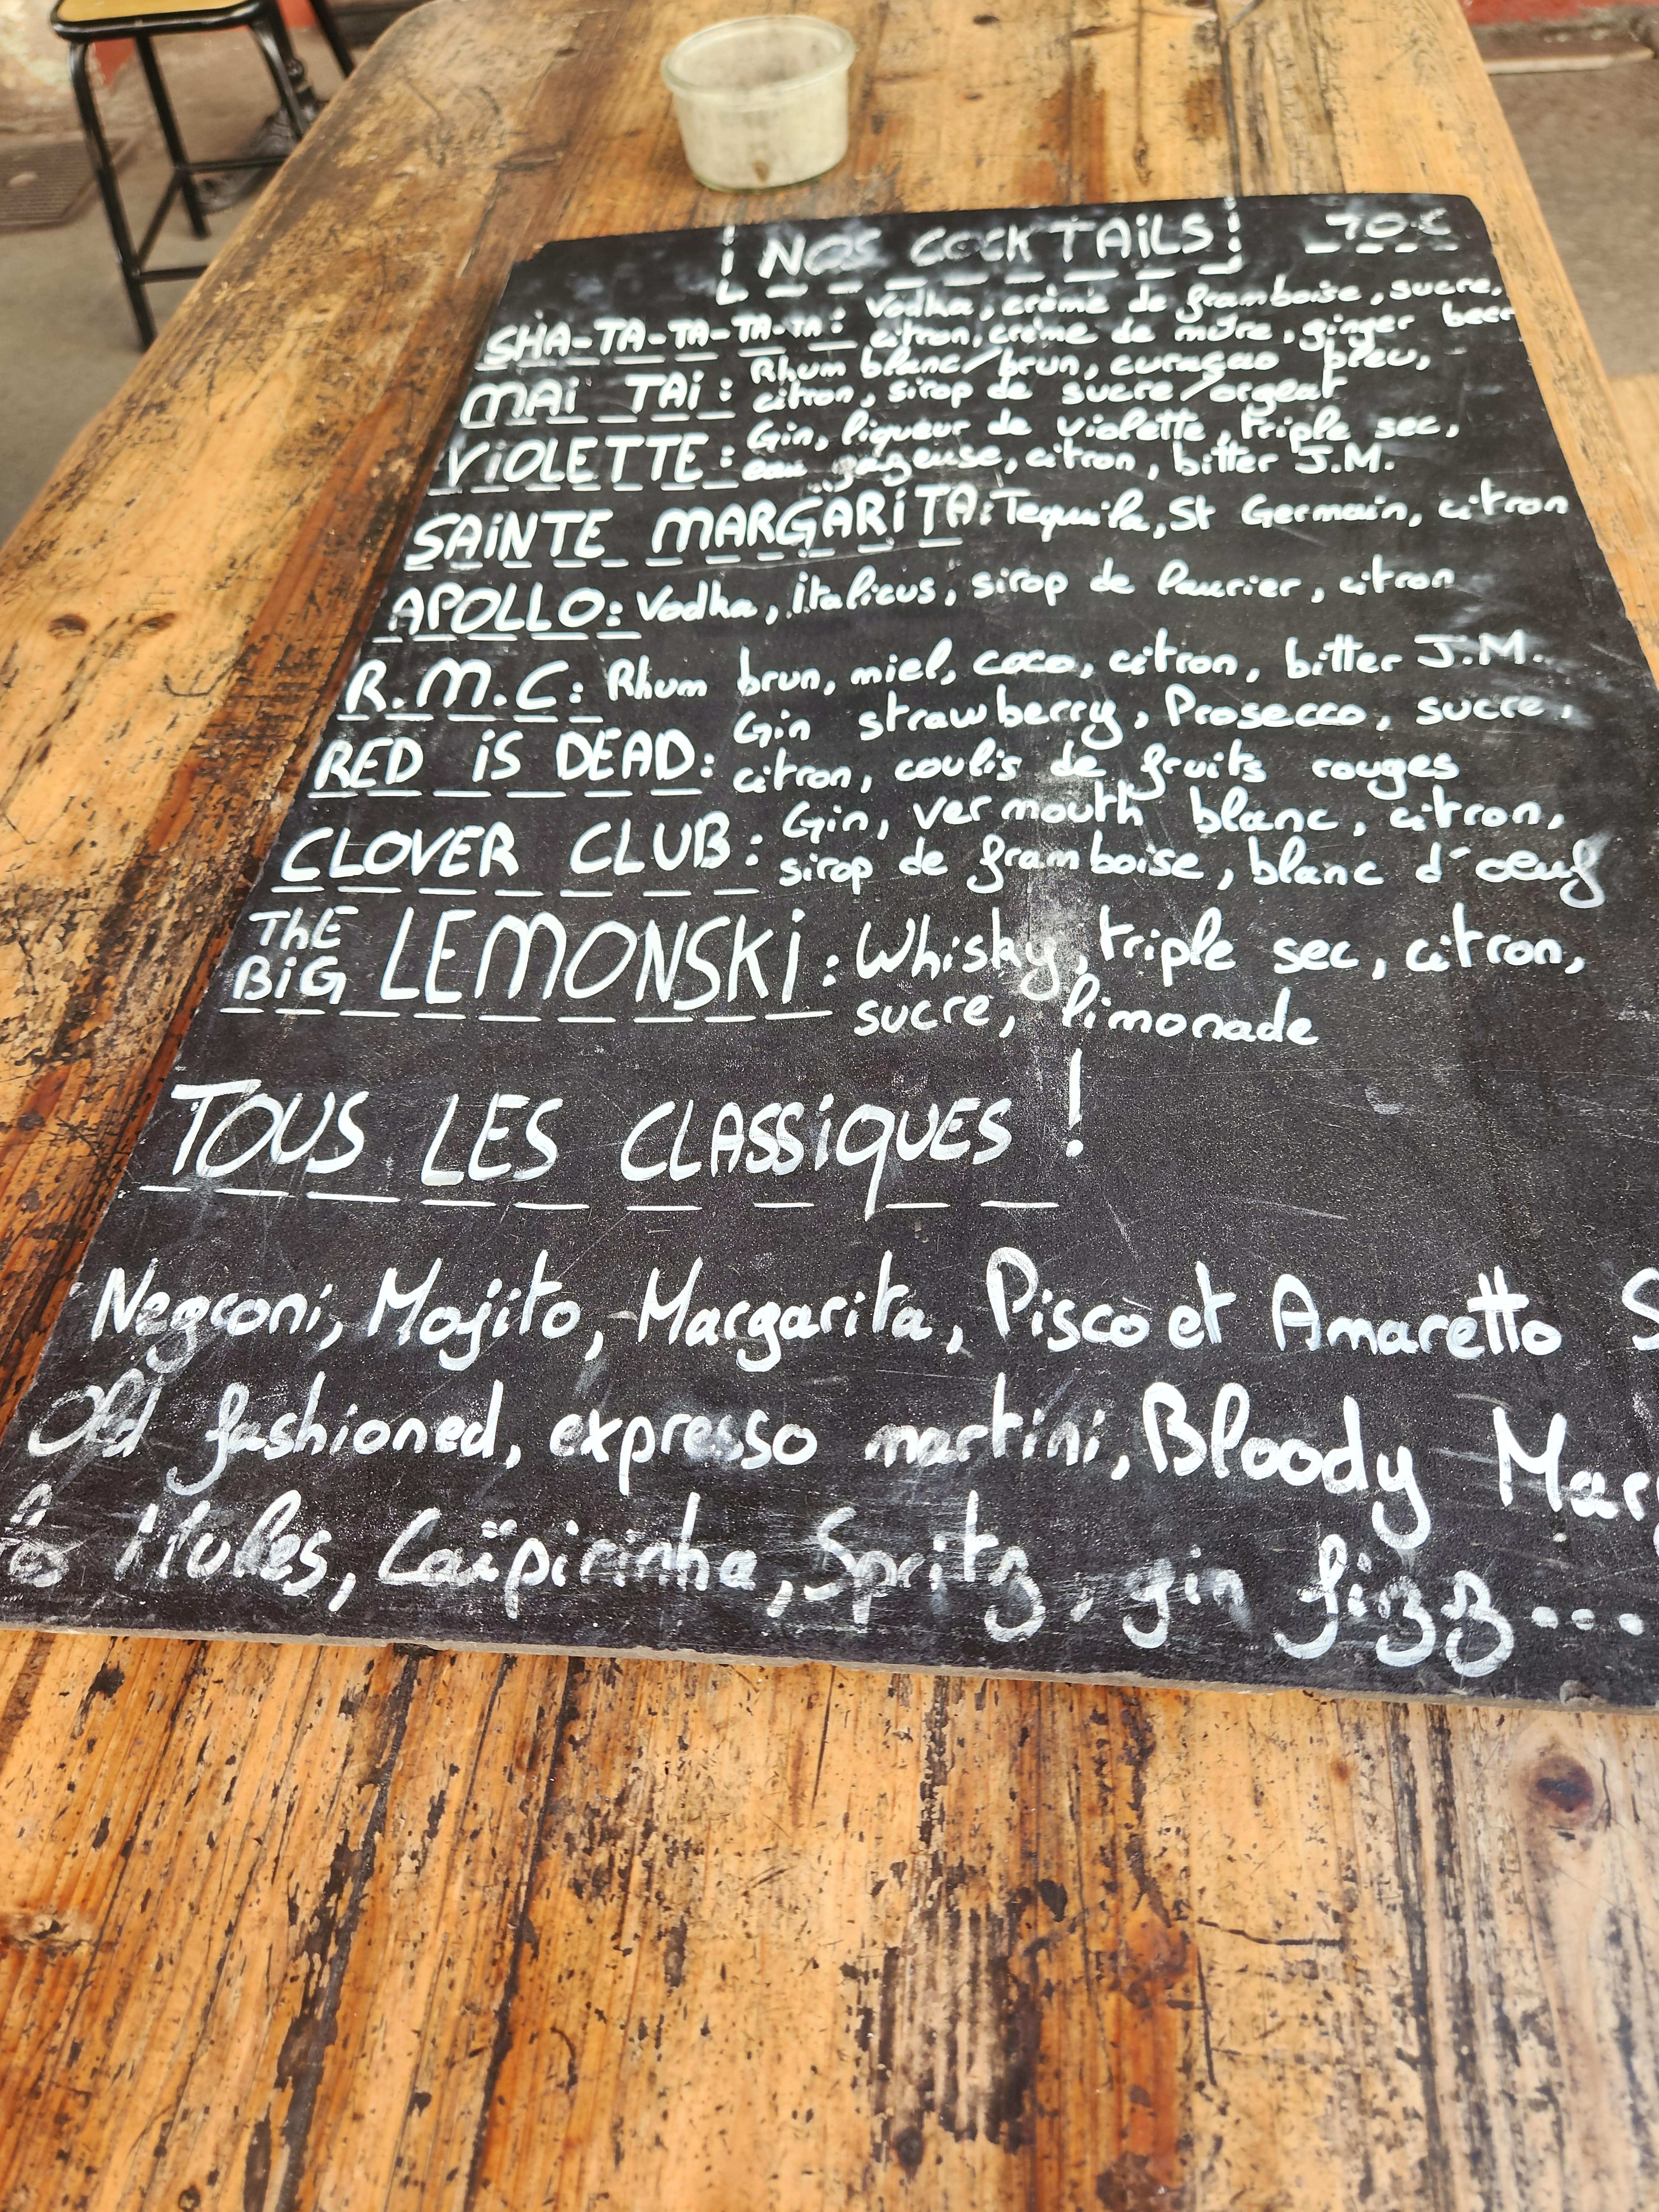 NOS COCKTAILS! 10€
SHA-TA-TA-TA-TA: Vodka, crème de framboise, sucre,
citron, crème de mûre, ginger beer
MAi TAi: Rhum blanc/brun, curaçao bleu,
citron, sirop de sucre/orgeat
ViOLETTE: Gin, liqueur de violette, triple sec,
eau gazeuse, citron, bitter J.M.
SAiNTE MARGARiTA: Tequila, St Germain, citron
APOLLO: Vodka, italicus, sirop de laurier, citron
R.M.C: Rhum brun, miel, coco, citron, bitter J.M.
RED iS DEAD: Gin strawberry, Prosecco, sucre,
citron, coulis de fruits rouges
CLOVER CLUB: Gin, vermouth blanc, citron,
sirop de framboise, blanc d'oeuf
ThE BiG LEMONSKi: Whisky, triple sec, citron,
sucre, limonade
TOUS LES CLASSiQUES!
Negroni, Mojito, Margarita, Pisco et Amaretto S
Old fashioned, expresso martini, Bloody Mary
Mules, Caïpirinha, Spritz, gin fizz....